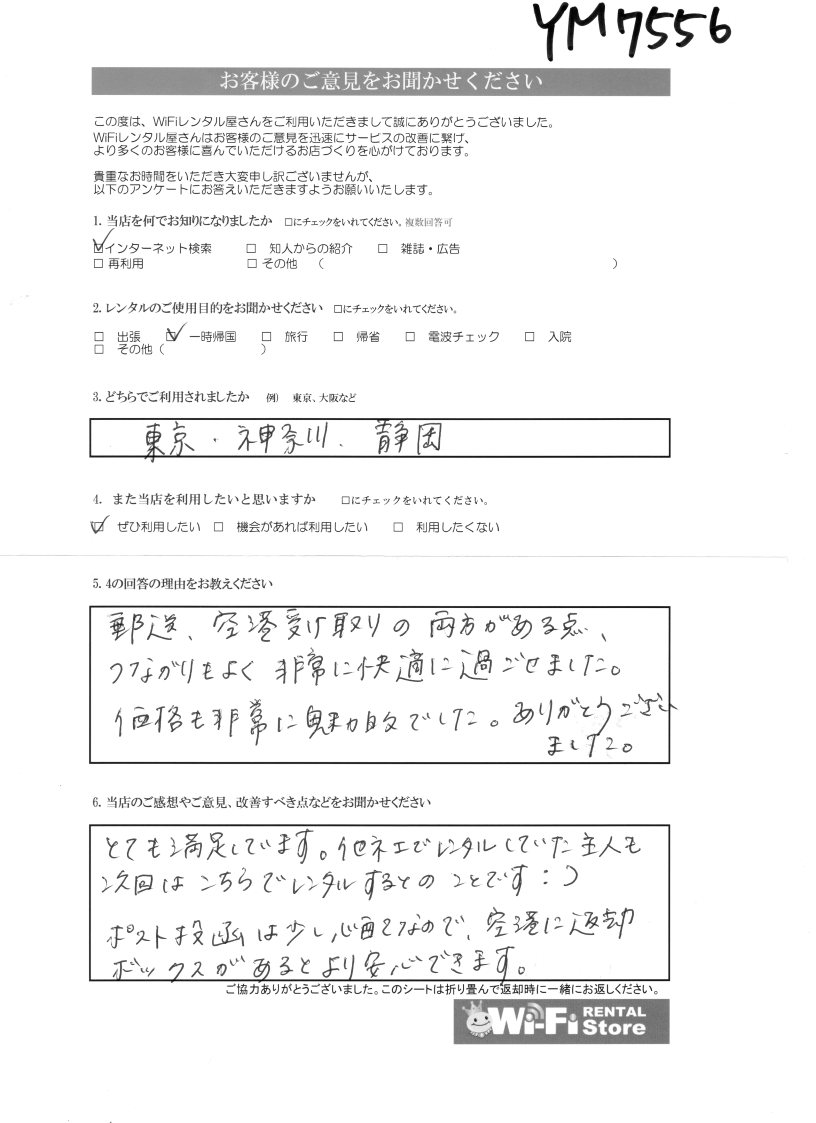 YM7556
お客様のご意見をお聞かせください
この度は、WiFiレンタル屋さんをご利用いただきまして誠にありがとうございました。
WiFiレンタル屋さんはお客様のご意見を迅速にサービスの改善に繋げ、
より多くのお客様に喜んでいただけるお店づくりを心がけております。
貴重なお時間をいただき大変申し訳ございませんが、
以下のアンケートにお答えいただきますようお願いいたします。
1. 当店を何でお知りになりましたか □にチェックをいれてください。複数回答可
☑インターネット検索 □ 知人からの紹介 □ 雑誌・広告
□ 再利用 □ その他 ( )
2. レンタルのご使用目的をお聞かせください □にチェックをいれてください。
□ 出張 ☑ 一時帰国 □ 旅行 □ 帰省 □ 電波チェック □ 入院
□ その他 ( )
3. どちらでご利用されましたか 例) 東京、大阪など
東京・神奈川、静岡
4. また当店を利用したいと思いますか □にチェックをいれてください。
☑ ぜひ利用したい □ 機会があれば利用したい □ 利用したくない
5. 4の回答の理由をお教えください
郵送、空港受け取りの両方がある点、
つながりもよく非常に快適に過ごせました。
価格も非常に魅力的でした。ありがとうござい
ました。
6. 当店のご感想やご意見、改善すべき点などをお聞かせください
とても満足しています。他ネエでレンタルしていた主人も
次回はこちらでレンタルするとのことです:)
ポスト投函は少し心配なので、空港に返却
ボックスがあるとより安心できます。
ご協力ありがとうございました。このシートは折り畳んで返却時に一緒にお返しください。
Wi-Fi RENTAL Store